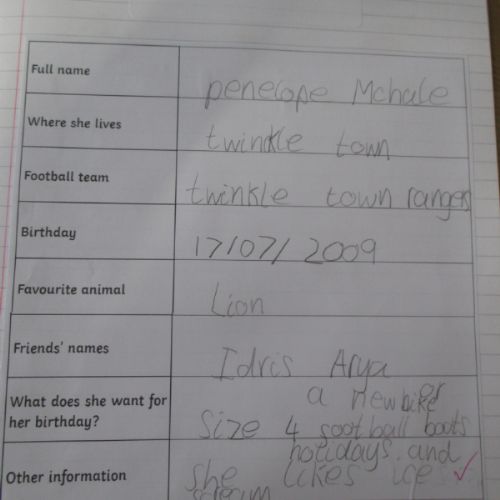 Full name
penelope Mchale
Where she lives
twinkle town
Football team
twinkle town rangers
Birthday
17/07/2009
Favourite animal
Lion
Friends' names
Idris Arya
What does she want for
her birthday?
a new bike or
size 4 soot ball boots
Other information
holidays and
she likes ice
cream